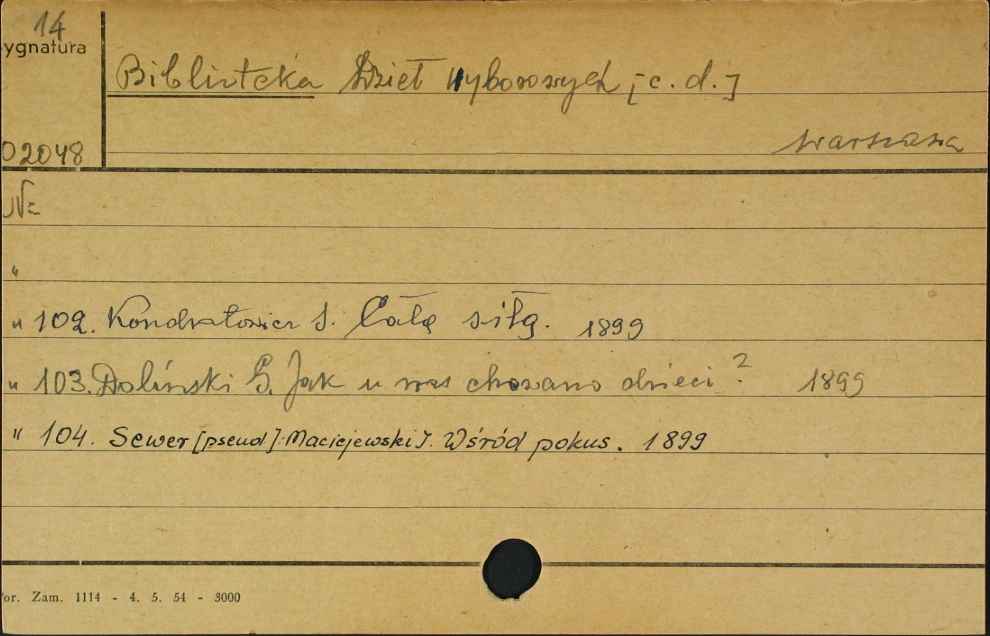 14
ygnatura
Biblioteka Dzieł Wyborowych [c. d.]
Warszawa
02048
№
"
" 102. Kondratowicz S. Całą siłą. 1899
" 103. Doliński G. Jak u nas chowano dzieci? 1899
" 104. Sewer [pseud]. Maciejewski J. Wśród pokus. 1899
or. Zam. 1114 - 4. 5. 54 - 3000